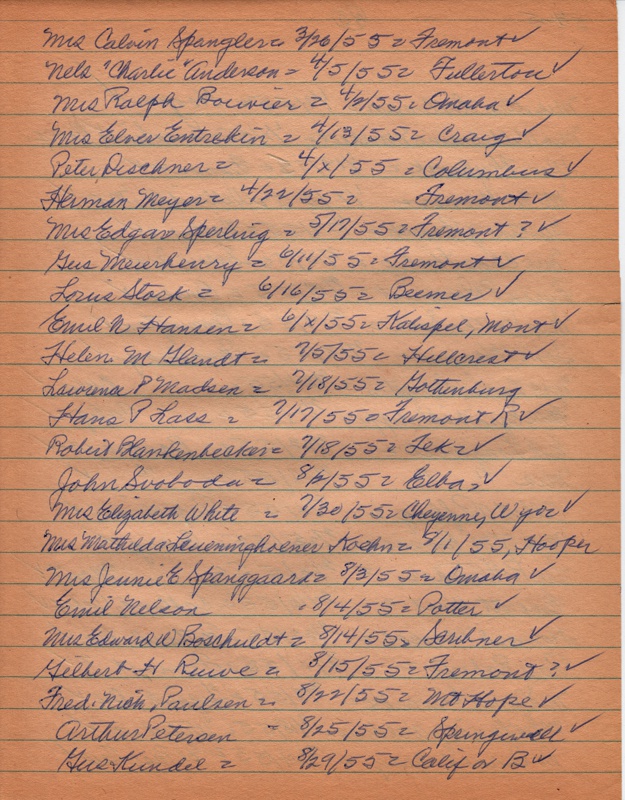 Mrs Calvin Spangler = 3/26/55 = Fremont ✓
Nels "Charlie" Anderson = 4/5/55 = Fullerton ✓
Mrs Ralph Bouvier = 4/2/55 = Omaha ✓
Mrs Elver Entrekin = 4/13/55 = Craig ✓
Peter Dischner = 4/x/55 = Columbus ✓
Herman Meyer = 4/22/55 = Fremont ✓
Mrs Edgar Sperling = 5/17/55 = Fremont ? ✓
Gus Meierhenry = 6/11/55 = Fremont ✓
Louis Stork = 6/16/55 = Beemer ✓
Emil N Hansen = 6/x/55 = Kalispel, Mont ✓
Helen M Glandt = 7/5/55 = Hillcrest ✓
Lawrence P Madsen = 7/18/55 = Gottenburg
Hans P Lass = 7/17/55 = Fremont R ✓
Robert Blankenbeker = 7/18/55 = Tek = ✓
John Svoboda = 55 = Elba = ✓
Mrs Elizabeth White = 7/30/55 = Cheyenne, Wyo = ✓
Mrs Mathilda Leueninghoener Koehn = 8/1/55, Hooper
Mrs Jennie E Spanggaard = 8/3/55 = Omaha ✓
Emil Nelson = 8/4/55 = Potter ✓
Mrs Edward W Boschuldt = 8/14/55 = Scribner ✓
Gilbert H Ruwe = 8/15/55 = Fremont ? ✓
Fred. Nick, Paulsen = 8/22/55 = Mt Hope ✓
Arthur Petersen = 8/25/55 = Springwell ✓
Gus Kundel = 8/29/55 = Calif or B ✓